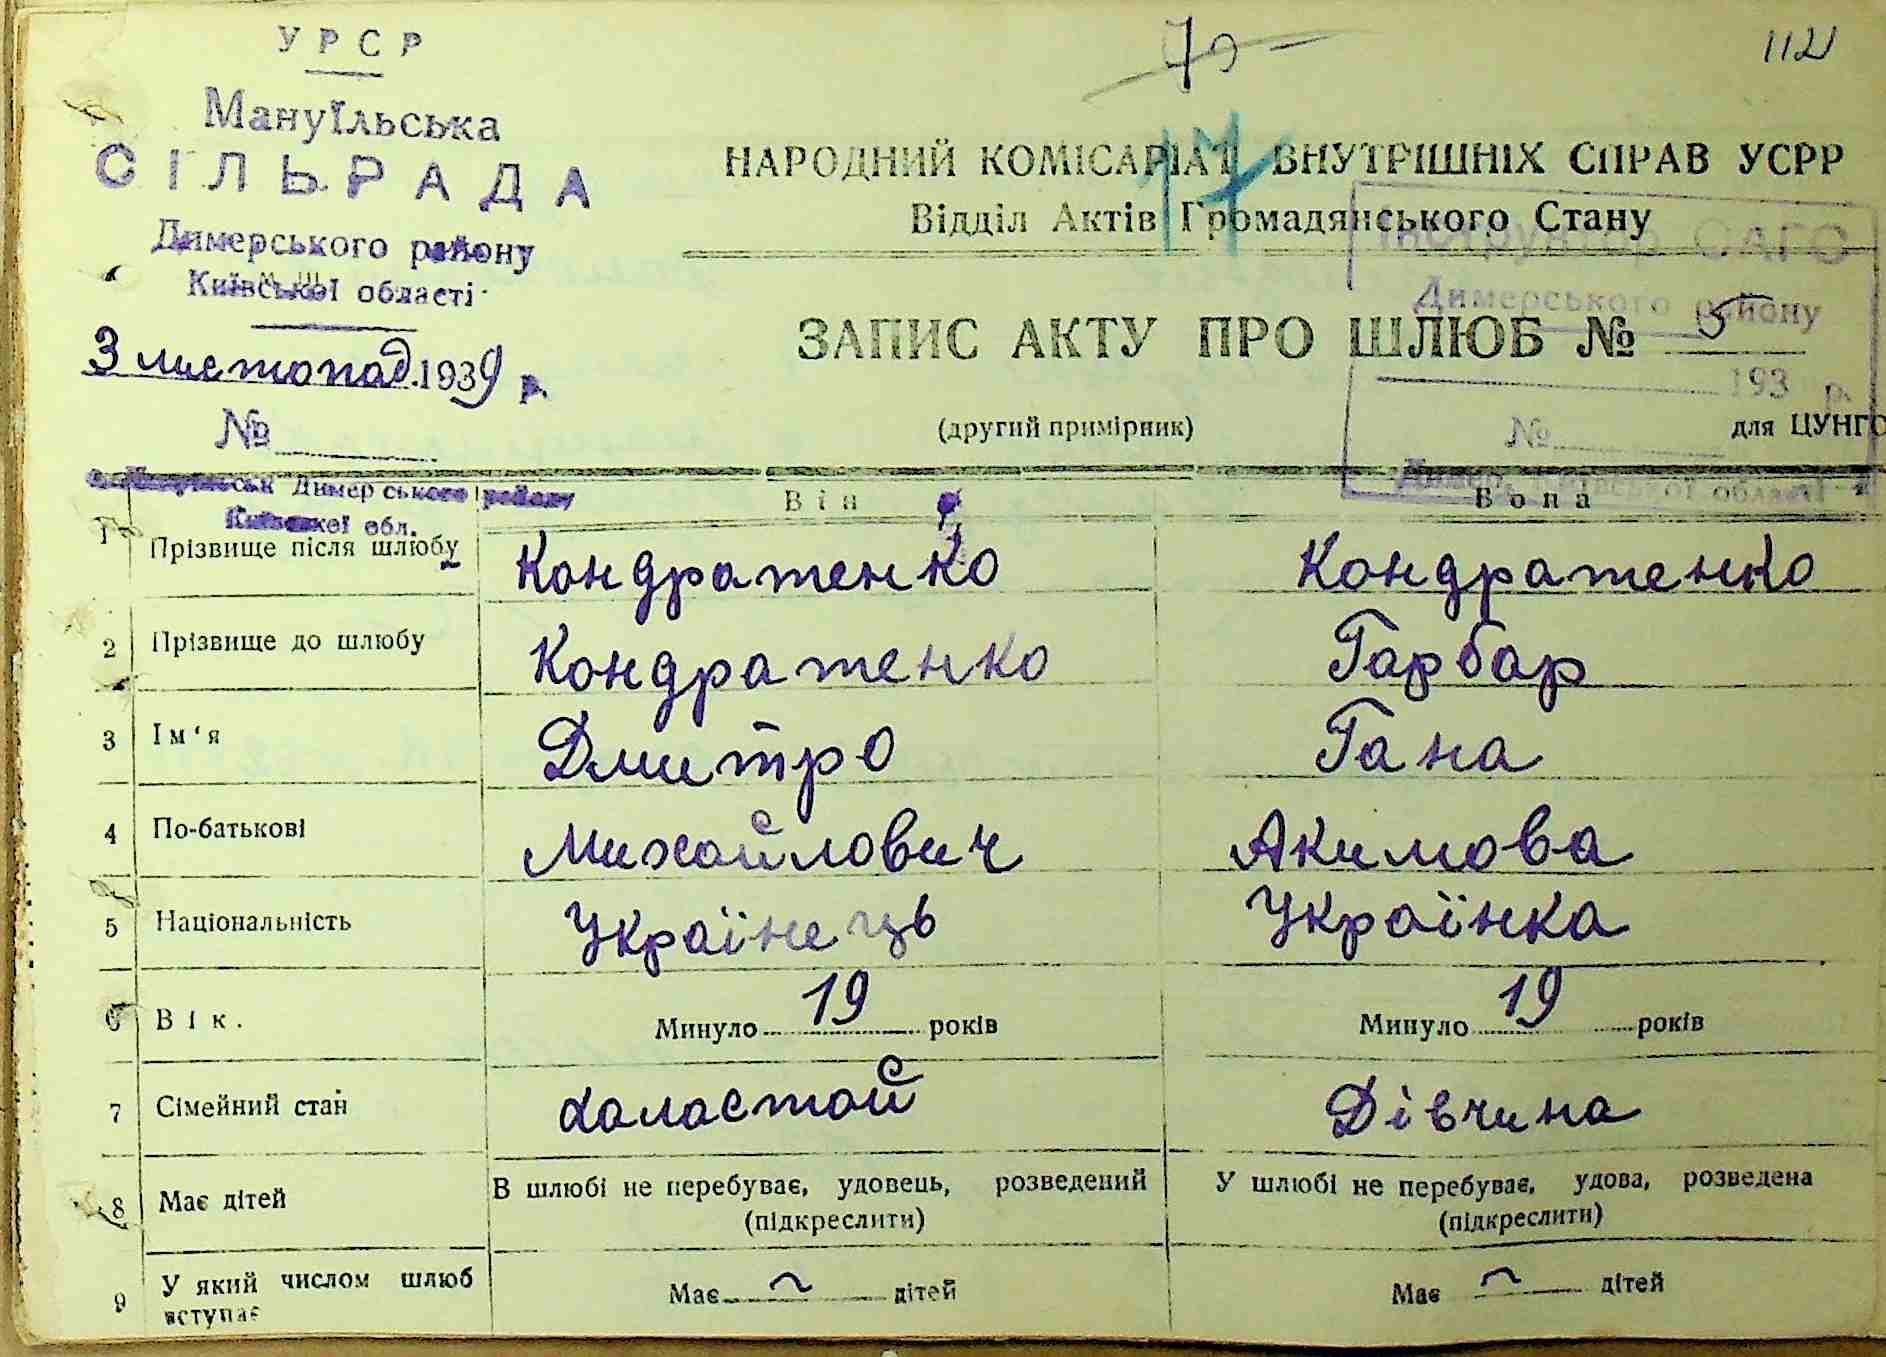 УРСР
Мануїльська
СІЛЬРАДА
Димерського району
Київської області
3 листопад. 1939 р.
№
Димерського району
Київської обл.
112
17
НАРОДНИЙ КОМІСАРІАТ ВНУТРІШНІХ СПРАВ УСРР
Відділ Актів Громадянського Стану
Інструктор ОАГС
Димерського району
ЗАПИС АКТУ ПРО ШЛЮБ № 5
193 р.
(другий примірник)
№
для ЦУНГО
Димер, Київської області
Він Вона
1 Прізвище після шлюбу Кондратенко Кондратенко
2 Прізвище до шлюбу Кондратенко Гарбар
3 Ім'я Дмитро Гана
4 По-батькові Михайлович Акимова
5 Національність Українець Українка
6 Вік. Минуло 19 років Минуло 19 років
7 Сімейний стан холостой Дівчина
8 Має дітей В шлюбі не перебуває, удовець, розведений У шлюбі не перебуває, удова, розведена
(підкреслити) (підкреслити)
9 У який числом шлюб Має ~ дітей Має ~ дітей
вступає